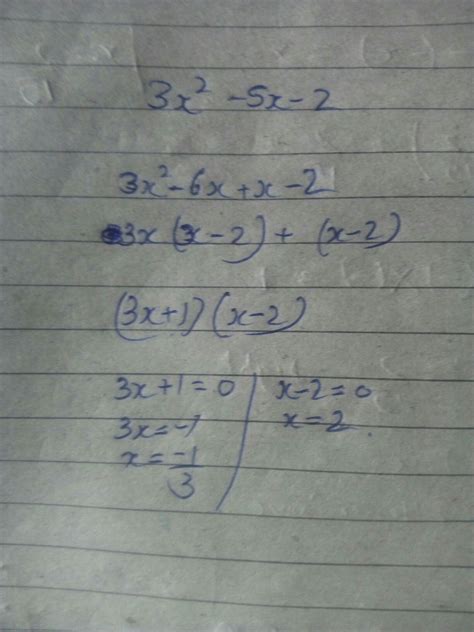 3x² - 5x - 2
3x² - 6x + x - 2
3x (x - 2) + (x - 2)
(3x + 1) (x - 2)
3x + 1 = 0 | x - 2 = 0
3x = -1 | x = 2.
x = -1/3